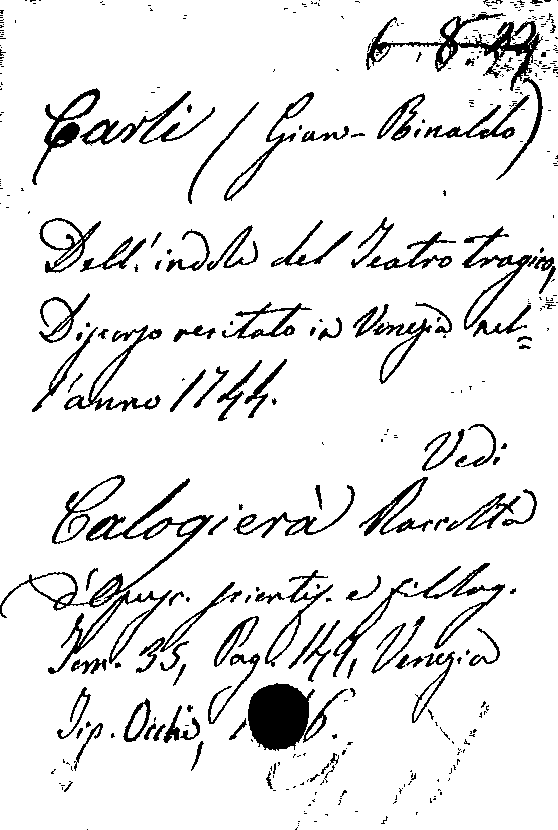 6. 8. 29.
Carli (Gian-Rinaldo)
Dell'indole del Teatro tragico,
Discorso recitato in Venezia nel-
l'anno 1744.
Vedi
Calogierà Raccolta
d'Opusc. scientif. e filolog.
Tom. 35, Pag. 149, Venezia
Tip. Occhi, 1 6.